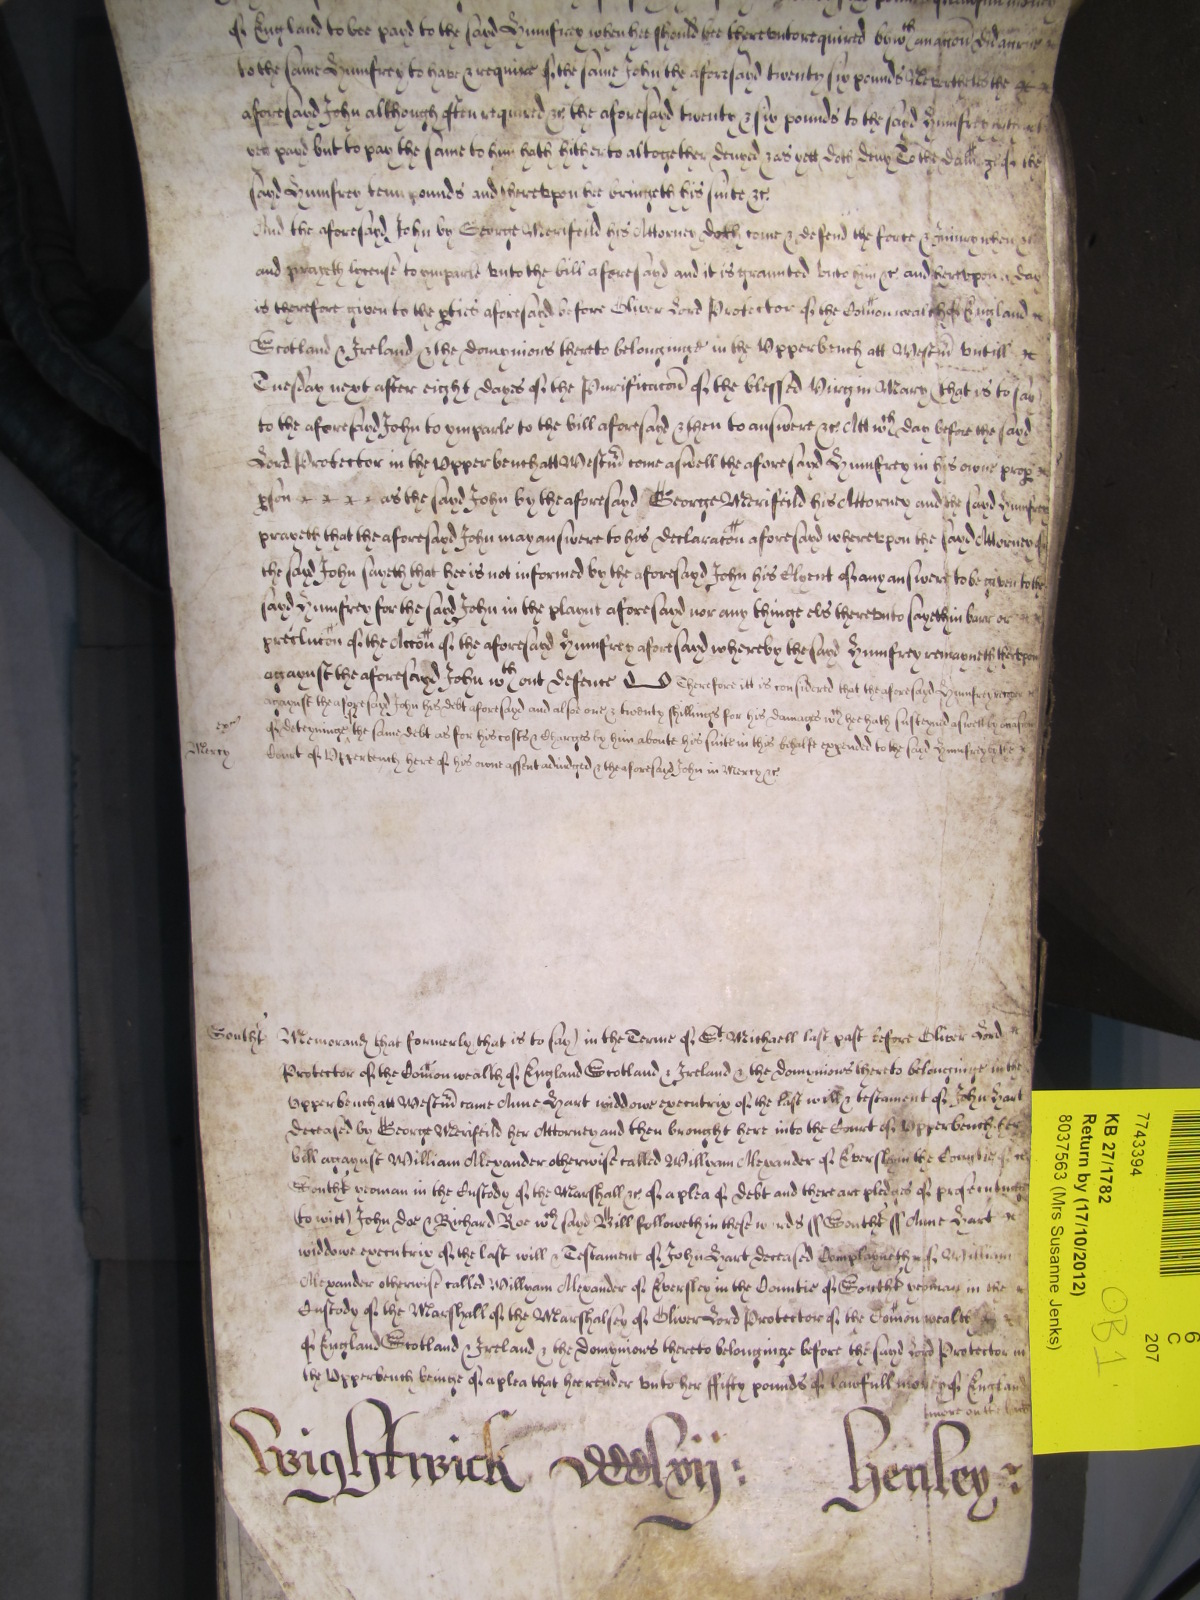 of England to bee payd to the sayd Humfrey when hee should bee thereunto required by wch an accon did accrue
to the same Humfrey to have & require of the same John the aforesayd twenty six pounds Neverthelesse the
aforesayd John although often required &c the aforesayd twenty & six pounds to the sayd Humfrey hath not
yet payd but to pay the same to him hath hitherto altogether denyed & as yett doth deny To the dam &c of the
sayd Humfrey tenn pounds and thereupon hee bringeth his suite &c
And the aforesayd John by George Merifeild his Attorney doth come & defend the force & Iniury when &c
and prayeth lycense to imparle unto the bill aforesayd and it is graunted unto him &c and hereupon a day
is therefore given to the pties aforesayd before Oliver Lord Protector of the Comon wealth of England
Scotland & Ireland & the dominions thereto belonginge in the Upper bench att Westm untill
Tuesday next after eight dayes of the Purificacon of the blessed Virgin Mary (that is to say)
to the aforesayd John to imparle to the bill aforesayd & then to answere &c Att wch day before the sayd
Lord Protector in the Upper bench att Westm come aswell the aforesayd Humfrey in his owne prop
pson as the sayd John by the aforesayd George Merifeild his Attorney and the sayd Humfrey
prayeth that the aforesayd John may answere to his declaracon aforesayd whereupon the sayd Attorney of
the sayd John sayeth that hee is not informed by the aforesayd John his Clyent of any answere to be given to the
sayd Humfrey for the sayd John in the playnt aforesayd nor any thinge els thereunto sayeth in barr or
preclucon of the Accon of the aforesayd Humfrey aforesayd whereby the sayd Humfrey remayneth thereupon
agaynst the aforesayd John wthout defence Therefore itt is considered that the aforesayd Humfrey recover
agaynst the aforesayd John his debt aforesayd and alsoe one & twenty shillings for his damages wch hee hath susteyned aswell by occasion
of deteyninge the same debt as for his costs & Charges by him aboute his suite in this behalfe expended to the sayd Humfrey by the
Mercy
Court of Upper bench here of his owne assent adiudged & the aforesayd John in Mercy &c
Southt Memorand that formerly (that is to say) in the Terme of St Michaell last past before Oliver Lord
Protector of the Comon wealth of England Scotland & Ireland & the dominions thereto belonginge in the
Upper bench att Westm came Anne Hart widdowe executrix of the last will & testament of John Hart
deceased by George Merifeild her Attorney and then brought here into the Court of Upper bench her
bill agaynst William Alexander otherwise called Willyam Alexander of Eversley in the Countie of
Southt yeoman in the Custody of the Marshall &c of a plea of debt and there are pledges of prosecutinge
(to witt) John Doe & Richard Roe wch sayd Bill followeth in these words ss Southt ss Anne Hart
widdowe executrix of the last will & Testament of John Hart deceased Complayneth of William
Alexander otherwise called Willyam Alexander of Eversley in the Countie of Southt yeoman in the
Custody of the Marshall of the Marshalsey of Oliver Lord Protector of the Comon wealth
of England Scotland & Ireland & the dominions thereto belonginge before the sayd Lord Protector in
the Upper bench beinge of a plea that hee render unto her ffifty pounds of lawfull money of England
more on the back
Wightwick Henley
7743394
KB 27/1782
Return by (17/10/2012)
8037563 (Mrs Susanne Jenks)
OB 1
6
C
207